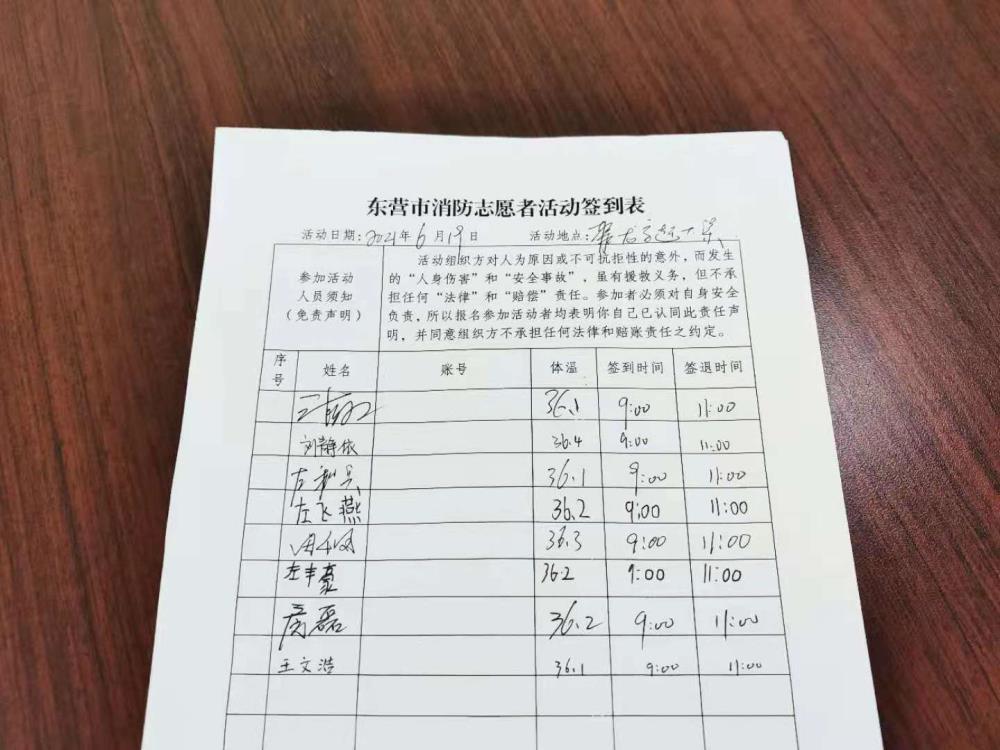 东营市消防志愿者活动签到表
活动日期：2021年6月19日 活动地点：
参加活动
人员须知
（免责声明）
活动组织方对人为原因或不可抗拒性的意外，而发生
的“人身伤害”和“安全事故”，虽有援救义务，但不承
担任何“法律”和“赔偿”责任。参加者必须对自身安全
负责，所以报名参加活动者均表明你自己已认同此责任声
明，并同意组织方不承担任何法律和赔账责任之约定。
序号 姓名 账号 体温 签到时间 签退时间
36.1 9:00 11:00
刘静依 36.4 9:00 11:00
36.1 9:00 11:00
左飞燕 36.2 9:00 11:00
36.3 9:00 11:00
左丰豪 36.2 9:00 11:00
磊 36.2 9:00 11:00
王文浩 36.1 9:00 11:00